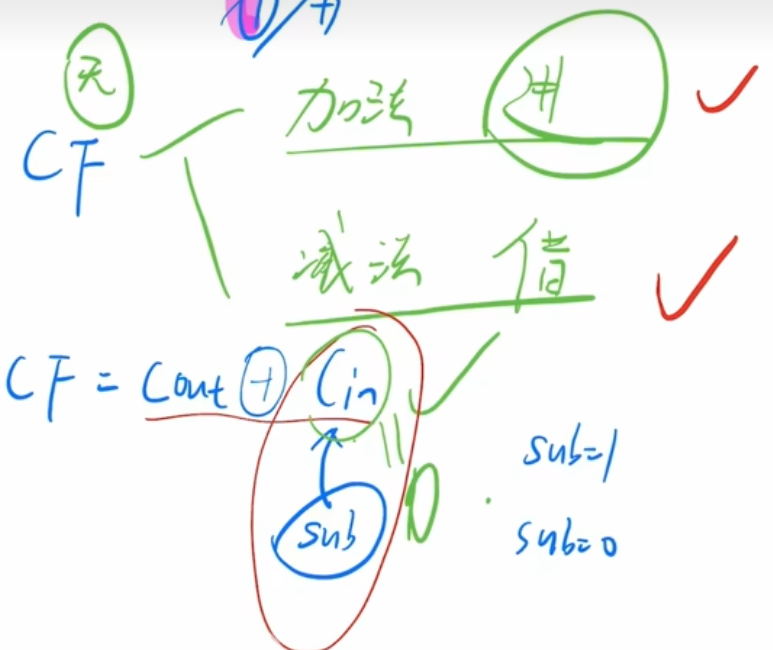 无
CF
加法 进
减法 借
CF = Cout ⊕ Cin
sub=1
sub
0
sub=0